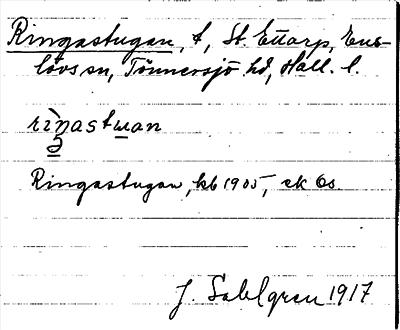 Ringastugan, t, St. Ettarp, Ens-
lövs sn, Tönnersjö hd, Hall. l.
riŋastuan
Ringastugan, kb 1905, ek 60
J. Sahlgren 1917